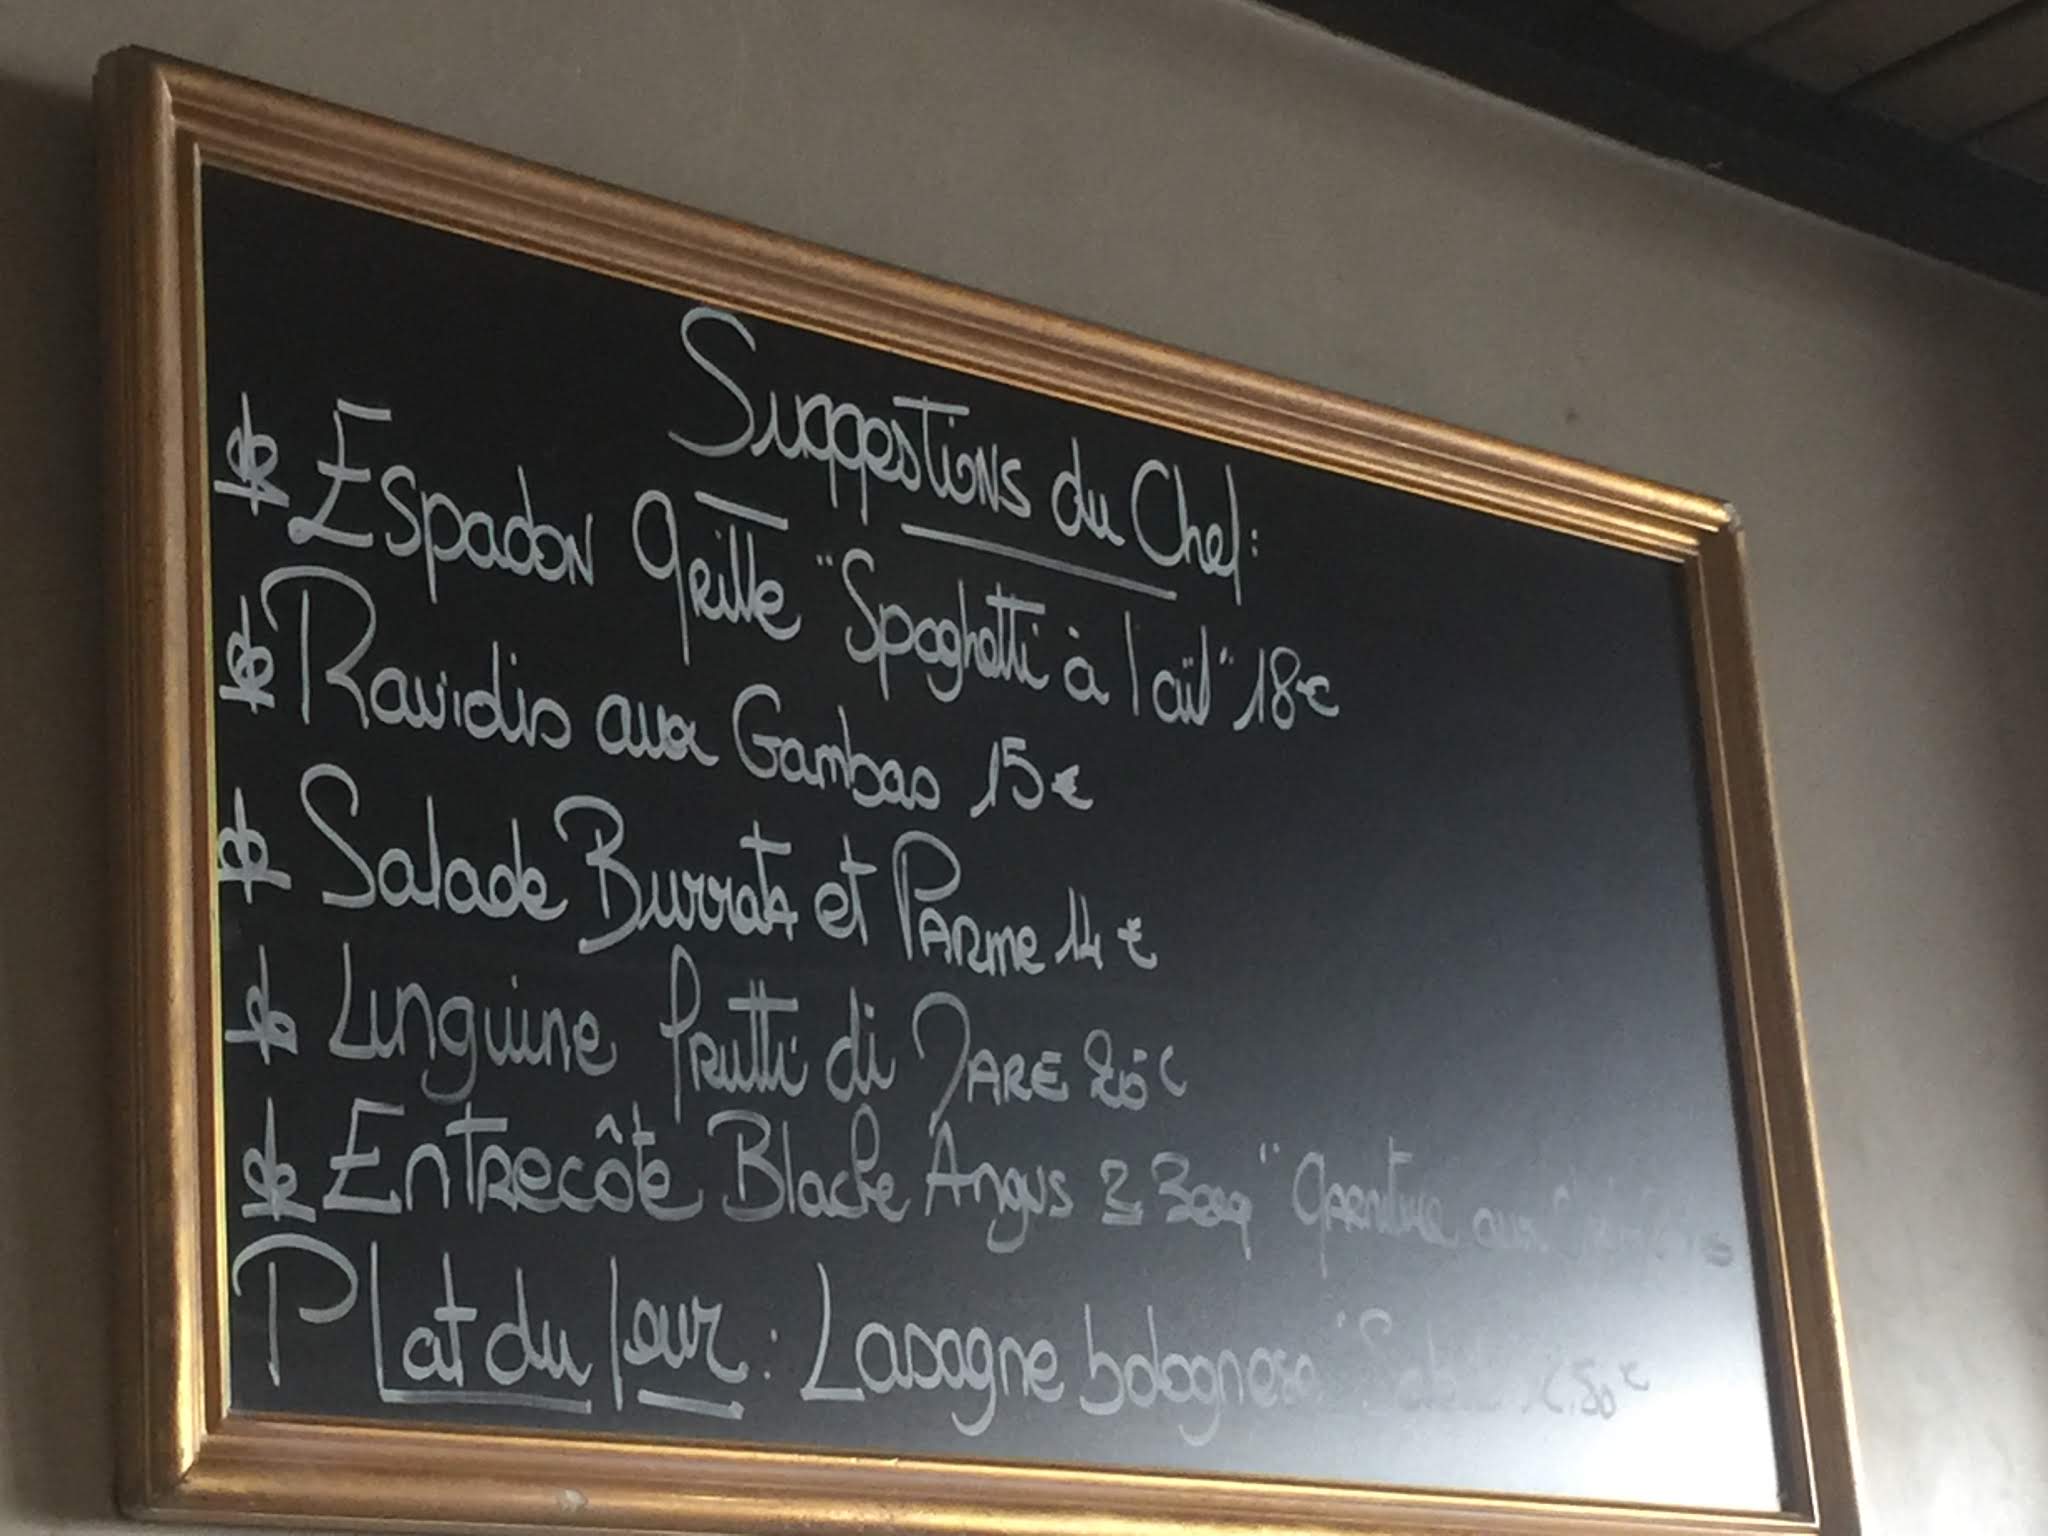 Suggestions du Chef:
* Espadon Grille "Spaghetti à l'ail" 18€
* Raviolis aux Gambas 15€
* Salade Burrata et Parme 14€
* Linguine frutti di Mare 20€
* Entrecôte Black Angus ± 300g "Garniture aux
Plat du Jour: Lasagne bolognese